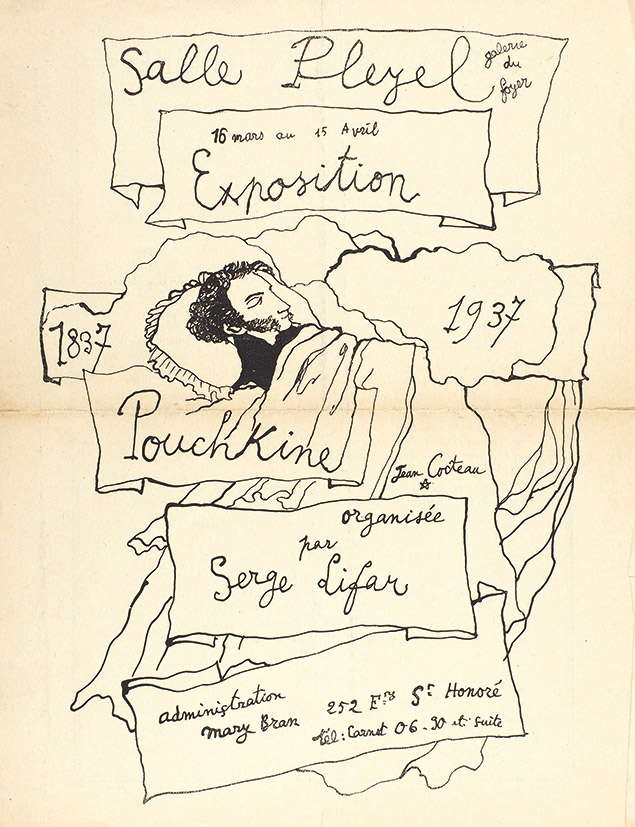 Salle Pleyel
galerie
du
foyer
16 mars au 15 Avril
Exposition
1837
1937
Pouchkine
Jean Cocteau
organisée
par
Serge Lifar
administration
Mary Bran
252 Fg St Honoré
tél: Carnot 06-30 et suite